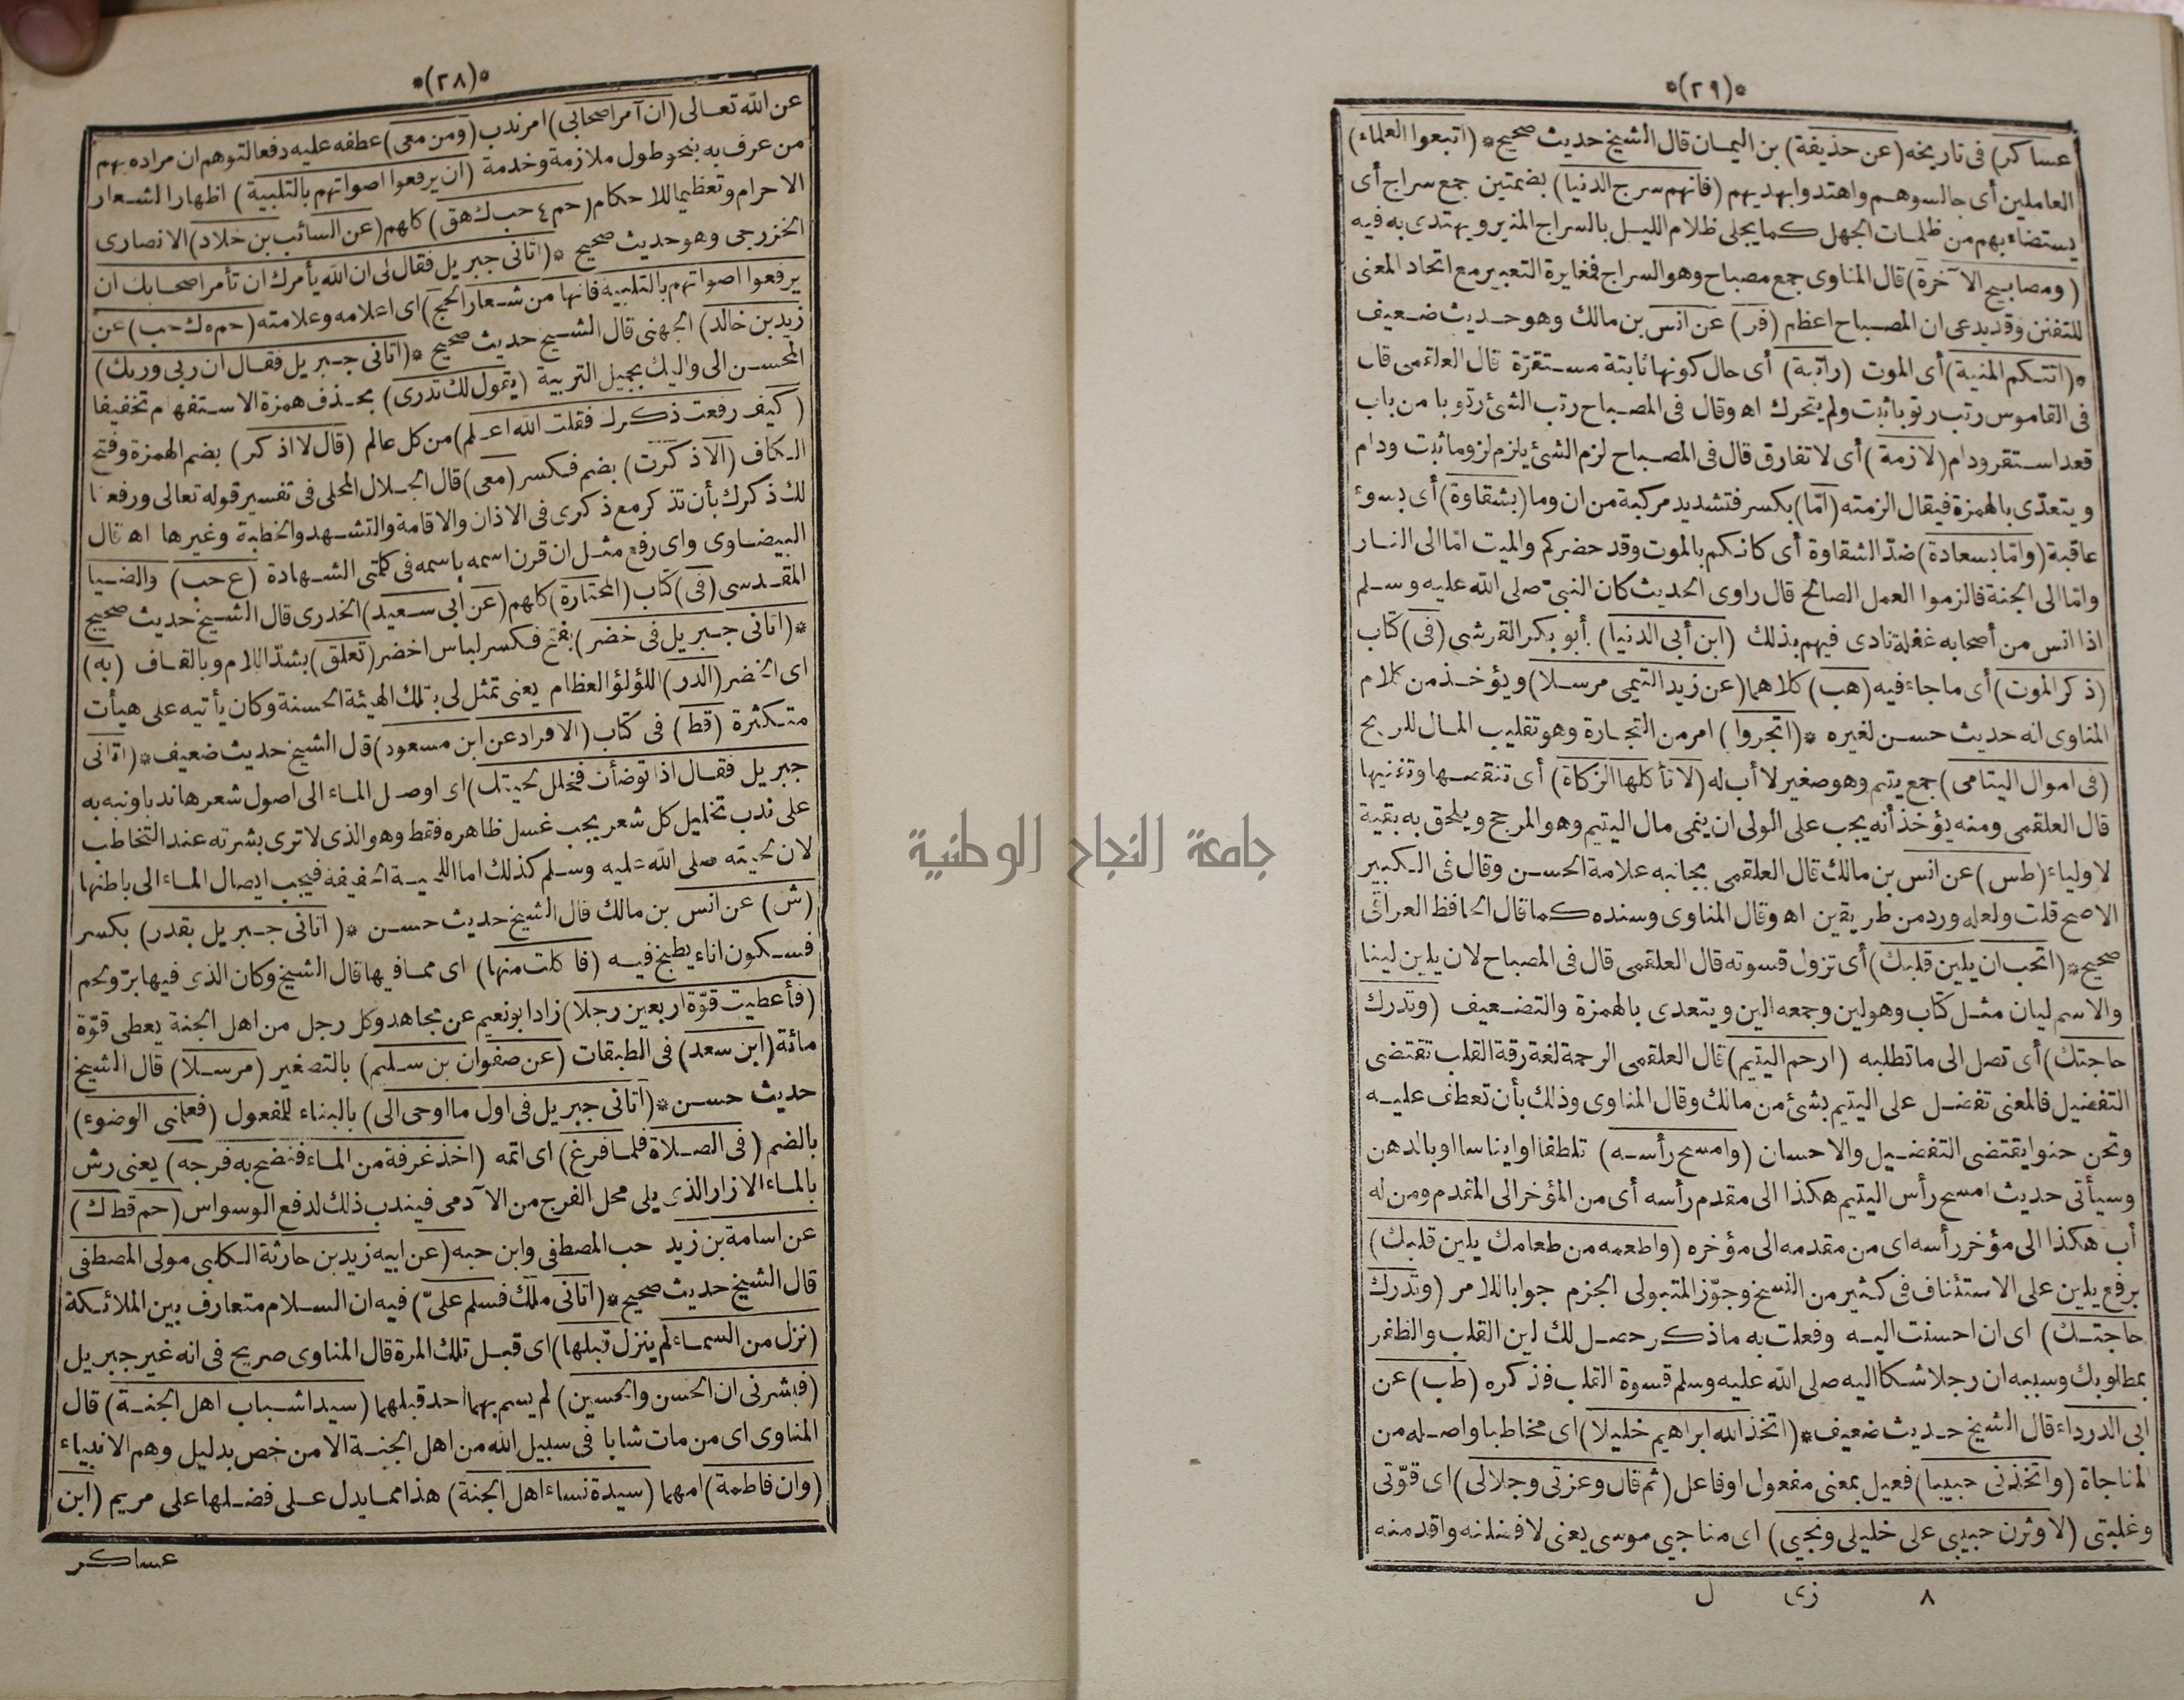 *(٢٨)*
عن الله تعالى (ان آمر اصحابى) امر ندب (ومن معى) عطفه عليه دفعا لتوهم ان مراده بهم
من عرف به بنحو طول ملازمة وخدمة (ان يرفعوا اصواتهم بالتلبية) اظهارا لشعار
الاحرام وتعظيما للاحكام (حم ٤ حب ك هق) كلهم (عن السائب بن خلاد) الانصارى
الخزرجى وهو حديث صحيح *(اتانى جبريل فقال لى ان الله يأمرك ان تأمر اصحابك ان
يرفعوا اصواتهم بالتلبية فانها من شعار الحج) اى اعلامه وعلامته (حم ه ك حب) عن
زيد بن خالد) الجهنى قال الشيخ حديث صحيح *(اتانى جبريل فقال ان ربى وربك)
المحسن الى واليك بجميل التربية (يقول لك تدرى) بحذف همزة الاستفهام تخفيفا
(كيف رفعت ذكرك فقلت الله اعلم) من كل عالم (قال لا اذكر) بضم الهمزة وفتح
الكاف (الا ذكرت) بضم فكسر (معى) قال الجلال المحلى فى تفسير قوله تعالى ورفعنا
لك ذكرك بأن تذكر مع ذكرى فى الاذان والاقامة والتشهد والخطبة وغيرها اه قال
البيضاوى واى رفع مثل ان قرن اسمه باسمه فى كلمتى الشهادة (ع حب) والضيا
المقدسى (فى) كتاب (المختارة) كلهم (عن أبى سعيد) الخدرى قال الشيخ حديث صحيح
*(اتانى جبريل فى خضر) بفتح فكسر لباس اخضر (تعلق) بشد اللام وبالقاف (به)
اى الخضر (الدر) اللؤلؤ العظام يعنى تمثل لى بتلك الهيئة الحسنة وكان يأتيه على هيأت
متكثرة (قط) فى كتاب (الافراد عن ابن مسعود) قال الشيخ حديث ضعيف *(اتانى
جبريل فقال اذا توضأت فخلل لحيتك) اى اوصل الماء الى اصول شعرها ندبا ونبه به
على ندب تخليل كل شعر يجب غسل ظاهره فقط وهو الذى لا ترى بشرته عند التخاطب
لان لحيته صلى الله عليه وسلم كذلك اما اللحية الخفيفة فيجب ايصال الماء الى باطنها
(ش) عن انس بن مالك قال الشيخ حديث حسن *(اتانى جبريل بقدر) بكسر
فسكون اناء يطبخ فيه (فاكلت منها) اى مما فيها قال الشيخ وكان الذى فيها بر ولحم
(فأعطيت قوّة اربعين رجلا) زاد ابو نعيم عن مجاهد وكل رجل من اهل الجنة يعطى قوّة
مائة (ابن سعد) فى الطبقات (عن صفوان بن سليم) بالتصغير (مرسلا) قال الشيخ
حديث حسن *(اتانى جبريل فى اول ما اوحى الى) بالبناء للمفعول (فعلمنى الوضوء)
بالضم (فى الصلاة فلما فرغ) اى اتمه (اخذ غرفة من الماء فنضح به فرجه) يعنى رش
بالماء الازار الذى يلى محل الفرج من الآدمى فيندب ذلك لدفع الوسواس (حم قط ك)
عن اسامة بن زيد حب المصطفى وابن حبه (عن ابيه زيد بن حارثة الكلبى مولى المصطفى
قال الشيخ حديث صحيح *(اتانى ملك فسلم علىّ) فيه ان السلام متعارف بين الملائكة
(نزل من السماء لم ينزل قبلها) اى قبل تلك المرة قال المناوى صريح فى انه غير جبريل
(فبشرنى ان الحسن والحسين) لم يسم بهما احد قبلهما (سيدا شباب اهل الجنة) قال
المناوى اى من مات شابا فى سبيل الله من اهل الجنة الا من خص بدليل وهم الانبياء
(وان فاطمة) امهما (سيدة نساء اهل الجنة) هذا مما يدل على فضلها على مريم (ابن
عساكر
*(٢٩)*
عساكر) فى تاريخه (عن حذيفة) بن اليمان قال الشيخ حديث صحيح *(اتبعوا العلماء)
العاملين أى جالسوهم واهتدوا بهديهم (فانهم سرج الدنيا) بضمتين جمع سراج أى
يستضاء بهم من ظلمات الجهل كما يجلى ظلام الليل بالسراج المنير ويهتدى به فيه
(ومصابيح الآخرة) قال المناوى جمع مصباح وهو السراج فمغايرة التعبير مع اتحاد المعنى
للتفنن وقد يدعى ان المصباح اعظم (فر) عن انس بن مالك وهو حديث ضعيف
*(اتتكم المنية) أى الموت (راتبة) أى حال كونها ثابتة مستقرّة قال العلقمى قال
فى القاموس رتب رتوبا ثبت ولم يتحرك اه وقال فى المصباح رتب الشئ رتوبا من باب
قعد استقر ودام (لازمة) أى لا تفارق قال فى المصباح لزم الشئ يلزم لزوما ثبت ودام
ويتعدّى بالهمزة فيقال الزمته (امّا) بكسر فتشديد مركبة من ان وما (بشقاوة) أى بسوء
عاقبة (وامّا بسعادة) ضدّ الشقاوة أى كانكم بالموت وقد حضركم والميت امّا الى النار
وامّا الى الجنة فالزموا العمل الصالح قال راوى الحديث كان النبىّ صلى الله عليه وسلم
اذا انس من أصحابه غفلة نادى فيهم بذلك (ابن أبى الدنيا) أبو بكر القرشى (فى) كتاب
(ذكر الموت) أى ما جاء فيه (هب) كلاهما (عن زيد التيمى مرسلا) ويؤخذ من كلام
المناوى انه حديث حسن لغيره *(اتجروا) امر من التجارة وهو تقليب المال للربح
(فى اموال اليتامى) جمع يتيم وهو صغير لا أب له (لا تأكلها الزكاة) أى تنقصها وتفنيها
قال العلقمى ومنه يؤخذ أنه يجب على الولى ان ينمى مال اليتيم وهو المرجح ويلحق به بقية
لاولياء (طس) عن انس بن مالك قال العلقمى بجانبه علامة الحسن وقال فى الكبير
الاصح قلت ولعله ورد من طريقين اه وقال المناوى وسنده كما قال الحافظ العراقى
صحيح *(اتحب ان يلين قلبك) أى تزول قسوته قال العلقمى قال فى المصباح لان يلين لينا
والاسم ليان مثل كتاب وهو لين وجمعه الين ويتعدى بالهمزة والتضعيف (وتدرك
حاجتك) أى تصل الى ما تطلبه (ارحم اليتيم) قال العلقمى الرحمة لغة رقة القلب تقتضى
التفضيل فالمعنى تفضل على اليتيم بشئ من مالك وقال المناوى وذلك بأن تعطف عليه
وتحن حنوا يقتضى التفضيل والاحسان (وامسح رأسه) تلطفا او ايناسا او بالدهن
وسيأتى حديث امسح رأس اليتيم هكذا الى مقدم رأسه أى من المؤخر الى المقدم ومن له
أب هكذا الى مؤخر رأسه اى من مقدمه الى مؤخره (واطعمه من طعامك يلين قلبك)
برفع يلين على الاستئناف فى كثير من النسخ وجوّز المتبولى الجزم جوابا للامر (وتدرك
حاجتك) اى ان احسنت اليه وفعلت به ما ذكر حصل لك لين القلب والظفر
بمطلوبك وسببه ان رجلا شكا اليه صلى الله عليه وسلم قسوة القلب فذكره (طب) عن
ابى الدرداء قال الشيخ حديث ضعيف *(اتخذ الله ابراهيم خليلا) اى مخاطبا واصله من
المناجاة (واتخذنى حبيبا) فعيل بمعنى مفعول او فاعل (ثم قال وعزتى وجلالى) اى قوّتى
وغلبتى (لاوثرن حبيبى على خليلى ونجيى) اى مناجيى موسى يعنى لافضلنه واقدمنه
٨ زى ل
جامعة النجاح الوطنية